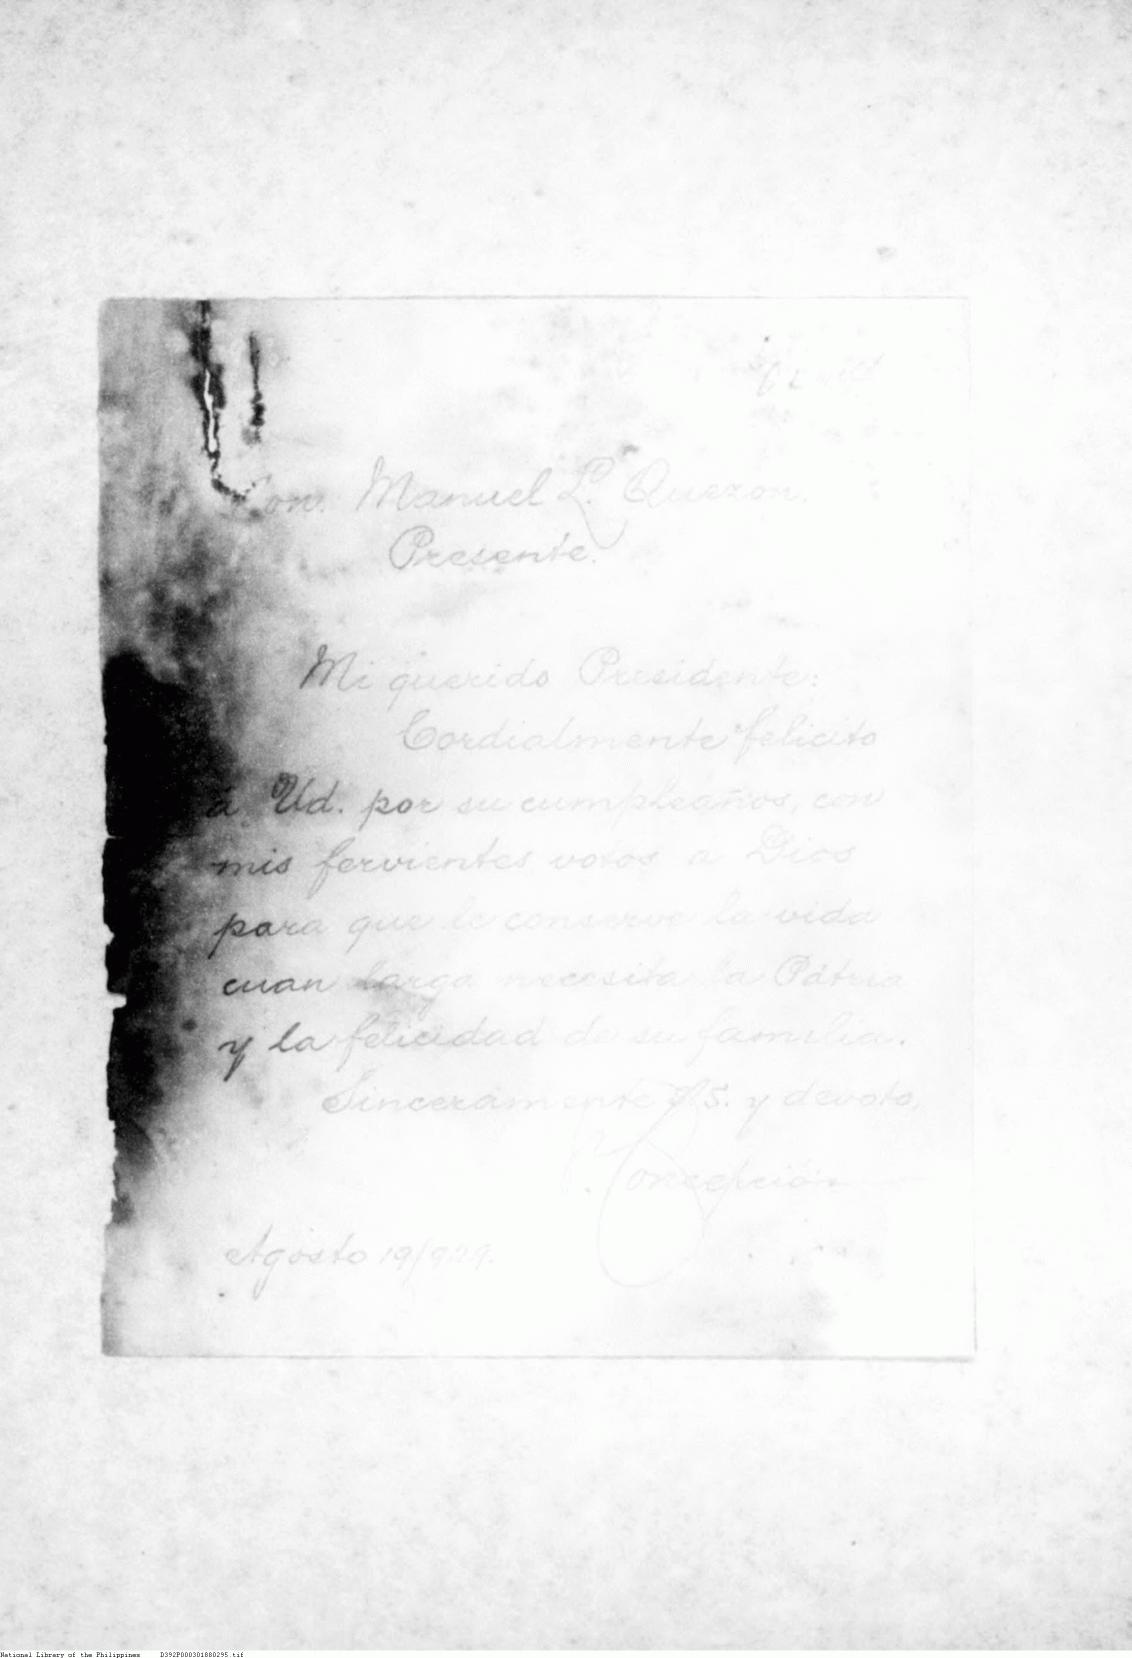 Hon. Manuel L. Quezon.
Presente.
Mi querido Presidente:
Cordialmente felicito
á Ud. por su cumpleaños, con
mis fervientes votos a Dios
para que le conserve la vida
cuan larga necesita la Pátria
y la felicidad de su familia.
Sinceramente S. y devoto,
Concepción
Agosto 19/929.
National Library of the Philippines D392P000301880295.tif